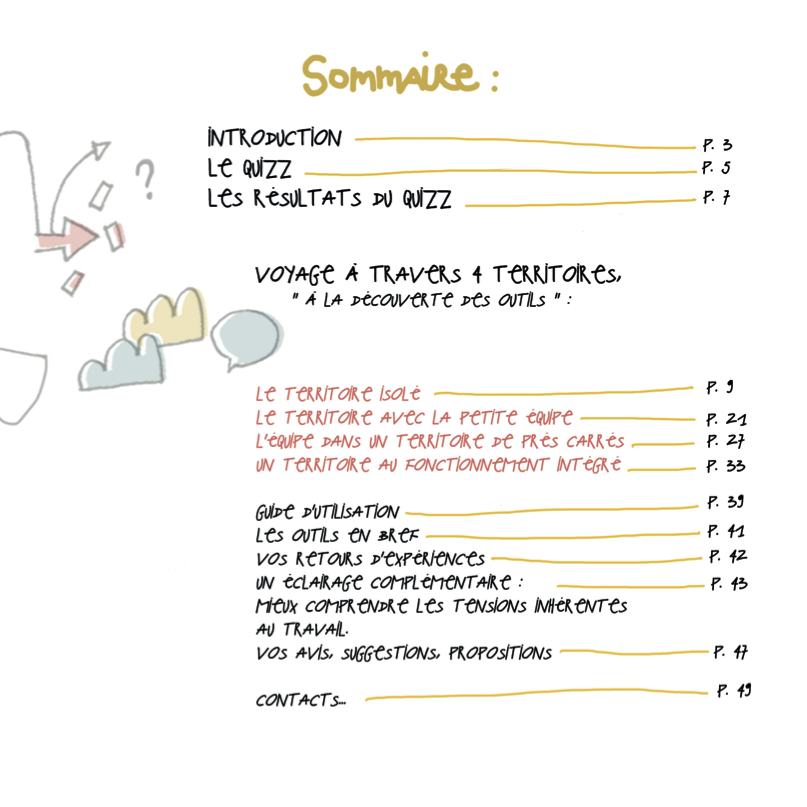 Sommaire :
INTRODUCTION P. 3
LE QUIZZ P. 5
LES RÉSULTATS DU QUIZZ P. 7
?
VOYAGE À TRAVERS 4 TERRITOIRES,
" À LA DÉCOUVERTE DES OUTILS " :
LE TERRITOIRE ISOLÉ P. 9
LE TERRITOIRE AVEC LA PETITE ÉQUIPE P. 21
L'ÉQUIPE DANS UN TERRITOIRE DE PRÈS CARRÉS P. 27
UN TERRITOIRE AU FONCTIONNEMENT INTÉGRÉ P. 33
GUIDE D'UTILISATION P. 39
LES OUTILS EN BREF P. 41
VOS RETOURS D'EXPÉRIENCES P. 42
UN ÉCLAIRAGE COMPLÉMENTAIRE : P. 43
MIEUX COMPRENDRE LES TENSIONS INHÉRENTES
AU TRAVAIL.
VOS AVIS, SUGGESTIONS, PROPOSITIONS P. 47
CONTACTS... P. 49